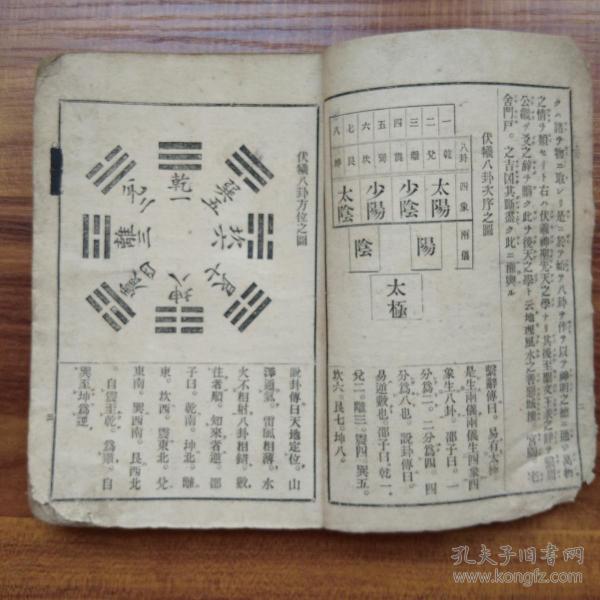 之情ヲ類セリト右ハ伏羲神
伏羲八卦次序之圖
八卦 四象 兩儀
一乾 二兌 三離 四震 五巽 六坎 七艮 八坤
太陽 少陰 少陽 太陰
陽 陰
太極
繫辭傳曰。易有太極
是生兩儀兩儀生四象四
象生八卦。邵子曰。一
分爲二。二分爲四。四
分爲八也。説卦傳曰。
易逆數也邵子曰乾一。
兌二。離三。震四。巽五。
坎六。艮七。坤八。
伏羲八卦方位之圖
乾一
兌二
離三
震四
巽五
坎六
艮七
坤八
説卦傳曰天地定位。山
澤通氣。雷風相薄。水
火不相射八卦相錯。數
往者順。知來者逆。邵
子曰。乾南。坤北。離
東。坎西。震東北。兌
東南。巽西南。艮西北
自震至乾。爲順。自
巽至坤爲逆。
孔夫子旧书网
www.kongfz.com